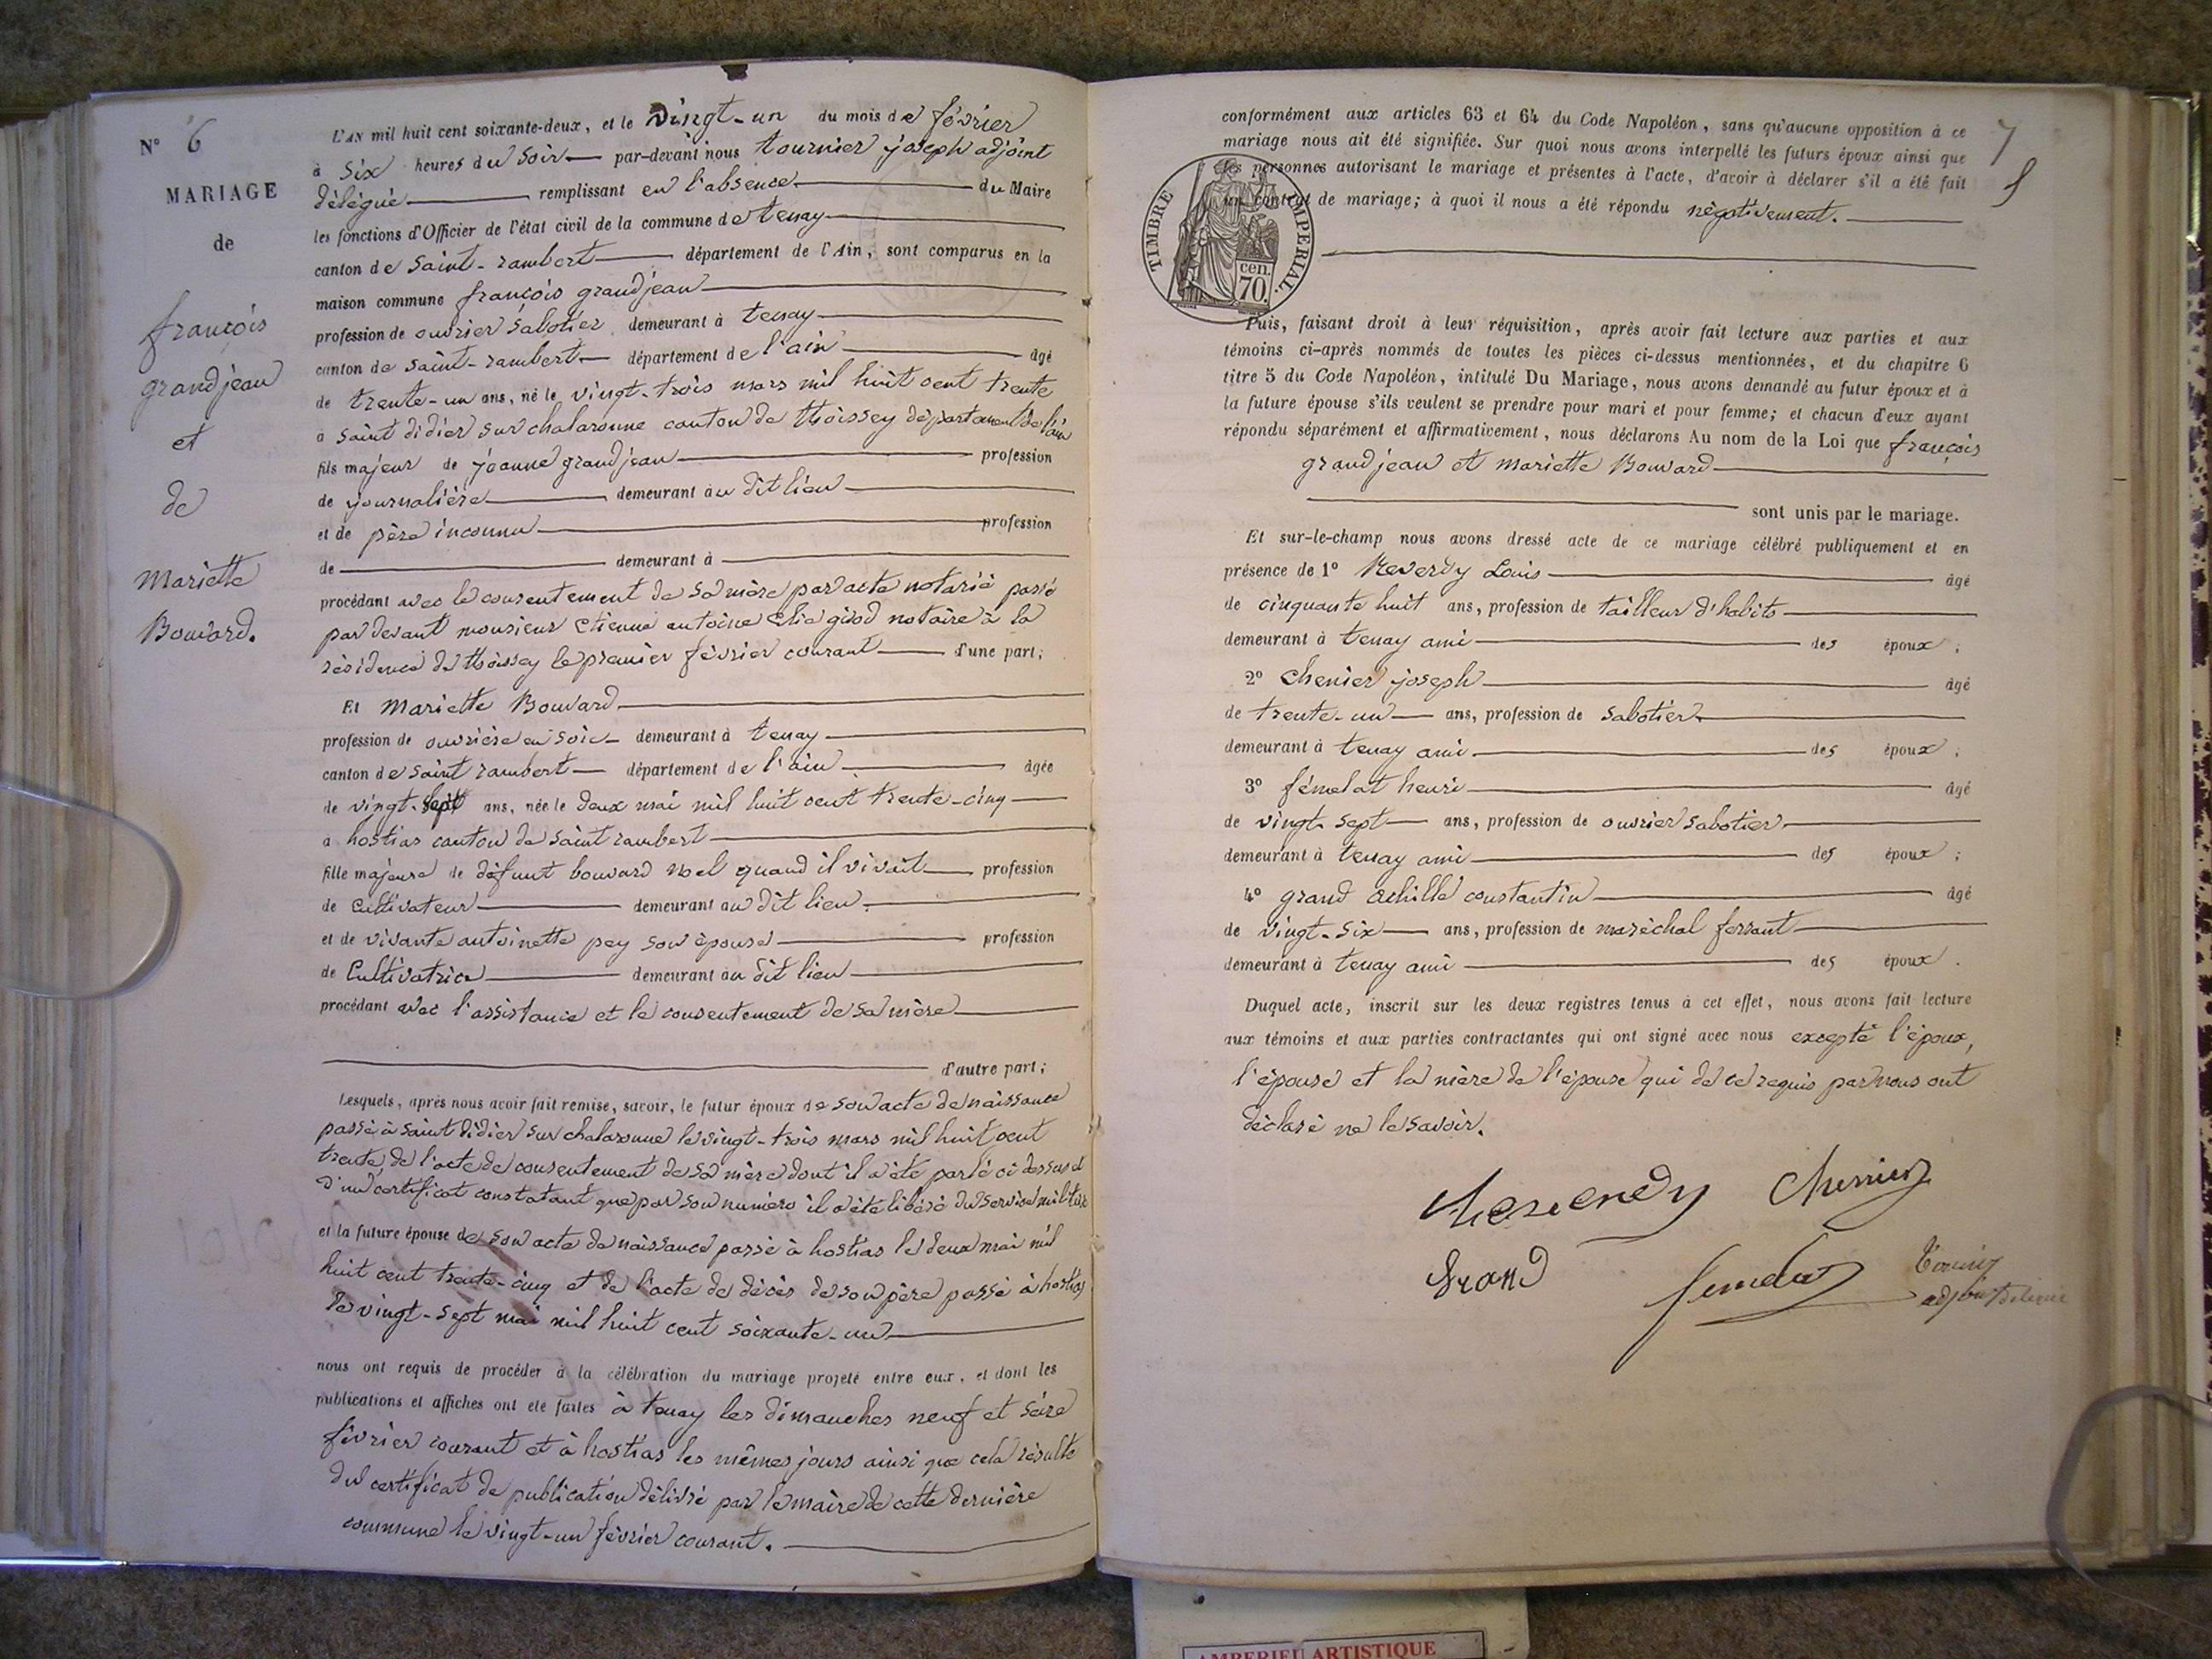 N° 6
MARIAGE
de
françois
grandjean
et
de
Mariette
Bouvard.
L'AN mil huit cent soixante-deux, et le vingt-un du mois de février
à six heures du soir par-devant nous tournier joseph adjoint
délégué remplissant en l'absence du Maire
les fonctions d'Officier de l'état civil de la commune de tenay
canton de saint-rambert département de l'Ain, sont comparus en la
maison commune françois grandjean
profession de ouvrier sabotier demeurant à tenay
canton de saint-rambert département de l'ain âgé
de trente-un ans, né le vingt-trois mars mil huit cent trente
à saint didier sur chalaronne canton de thoissey département de l'ain
fils majeur de jeanne grandjean profession
de journalière demeurant au dit lieu
et de père inconnu profession
de demeurant à
procédant avec le consentement de sa mère par acte notarié passé
par devant monsieur etienne antoine elie girod notaire à la
résidence de thoissey le premier février courant d'une part;
Et Mariette Bouvard
profession de ouvrière en soie demeurant à tenay
canton de saint rambert département de l'ain âgée
de vingt-sept ans, née le deux mai mil huit cent trente-cinq
à hostias canton de saint rambert
fille majeure de défunt bouvard noel quand il vivait profession
de Cultivateur demeurant au dit lieu
et de vivante antoinette pey son épouse profession
de Cultivatrice demeurant au dit lieu
procédant avec l'assistance et le consentement de sa mère
d'autre part;
Lesquels, après nous avoir fait remise, savoir, le futur époux de son acte de naissance
passé à saint didier sur chalaronne le vingt-trois mars mil huit cent
trente, de l'acte de consentement de sa mère dont il a été parlé ci dessus et
d'un certificat constatant que par son numéro il a été libéré du service militaire
et la future épouse de son acte de naissance passé à hostias le deux mai mil
huit cent trente-cinq et de l'acte de décès de son père passé à hostias
le vingt-sept mai mil huit cent soixante-un
nous ont requis de procéder à la célébration du mariage projeté entre eux, et dont les
publications et affiches ont été faites à tenay les dimanches neuf et seize
février courant et à hostias les mêmes jours ainsi que cela résulte
du certificat de publication délivré par le maire de cette dernière
commune le vingt-un février courant.
7
conformément aux articles 63 et 64 du Code Napoléon, sans qu'aucune opposition à ce
mariage nous ait été signifiée. Sur quoi nous avons interpellé les futurs époux ainsi que
les personnes autorisant le mariage et présentes à l'acte, d'avoir à déclarer s'il a été fait
un contrat de mariage; à quoi il nous a été répondu négativement.
TIMBRE IMPERIAL
cen.
70.
Puis, faisant droit à leur réquisition, après avoir fait lecture aux parties et aux
témoins ci-après nommés de toutes les pièces ci-dessus mentionnées, et du chapitre 6
titre 5 du Code Napoléon, intitulé Du Mariage, nous avons demandé au futur époux et à
la future épouse s'ils veulent se prendre pour mari et pour femme; et chacun d'eux ayant
répondu séparément et affirmativement, nous déclarons Au nom de la Loi que françois
grandjean et mariette Bouvard
sont unis par le mariage.
Et sur-le-champ nous avons dressé acte de ce mariage célébré publiquement et en
présence de 1° Reverdy Louis âgé
de cinquante huit ans, profession de tailleur d'habits
demeurant à tenay ami des époux;
2° Chenier joseph âgé
de trente-un ans, profession de sabotier
demeurant à tenay ami des époux;
3° fémelat henri âgé
de vingt-sept ans, profession de ouvrier sabotier
demeurant à tenay ami des époux;
4° grand achille constantin âgé
de vingt-six ans, profession de maréchal ferrant
demeurant à tenay ami des époux.
Duquel acte, inscrit sur les deux registres tenus à cet effet, nous avons fait lecture
aux témoins et aux parties contractantes qui ont signé avec nous excepté l'époux,
l'épouse et la mère de l'épouse qui de ce requis par nous ont
déclaré ne le savoir.
Reverdy Chenier
Grand femelat
adjoint
AMBERIEU ARTISTIQUE